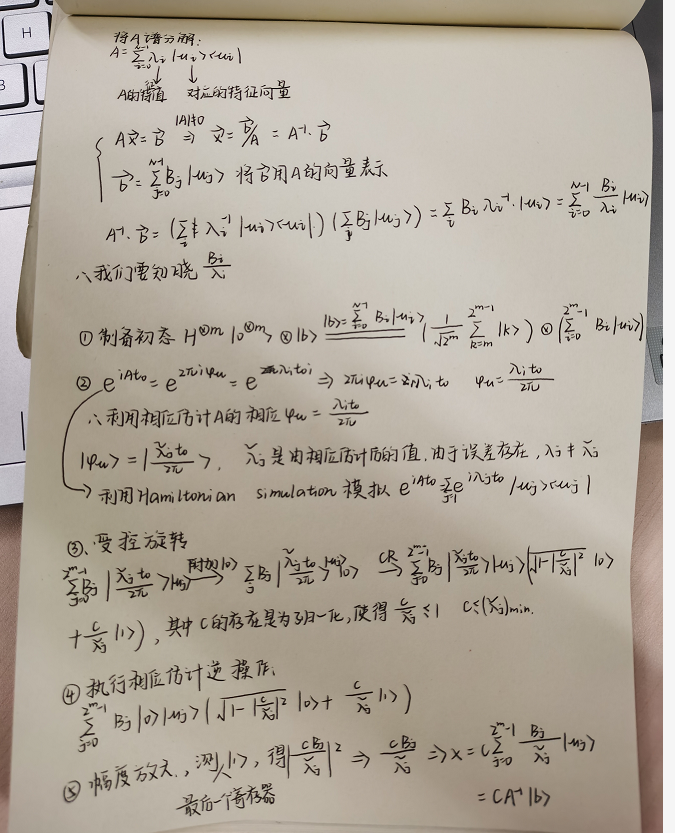 H
B
将A谱分解:
A=∑_{i=0}^{N-1} λi |ui><ui|
A的特征值 对应的特征向量
A\vec{x}=\vec{b} |A|≠0 ⇒ \vec{x}=\vec{b}/A = A⁻¹·\vec{b}
\vec{b}=∑_{j=0}^{N-1} Bj |uj> 将\vec{b}用A的向量表示
A⁻¹·\vec{b}=(∑_i λi⁻¹ |ui><ui|)(∑_j Bj|uj>)=∑_i Bi λi⁻¹·|ui>=∑_{i=0}^{N-1} Bi/λi |ui>
∴我们要知晓 Bi/λi
① 制备初态 H^{⊗m} |0^{⊗m}> ⊗|b> |b>=∑_{i=0}^{N-1} Bi|ui> (1/√2^m ∑_{k=m}^{2^m-1} |k>) ⊗ (∑_{i=0}^{2^m-1} Bi|ui>)
② e^{iAt0}=e^{2πiφu}=e^{λit0i} ⇒ 2πiφu=iλit0 φu=λit0/2π
∴利用相位估计A的相位φu=λit0/2π
|φu>=|\check{λ}jt0/2π>. \check{λ}j是由相位估计的值,由于误差存在,λj≠\check{λ}j
利用Hamiltonian simulation 模拟 e^{iAt0}=∑_{j=1} e^{iλjt0} |uj><uj|
③、受控旋转
∑_{j=0}^{2^m-1} Bj |\check{λ}jt0/2π>|uj> 附加|0> → ∑_j Bj |\check{λ}jt0/2π>|uj>|0> CR → ∑_{j=0}^{2^m-1} Bj |\check{λ}jt0/2π>|uj>(√(1-|c/\check{λ}j|²) |0>
+ c/\check{λ}j |1>), 其中C的存在是为了归一化,使得 c/\check{λ}j ≤1 C≤(\check{λ}j)min.
④ 执行相位估计逆操作.
∑_{j=0}^{2^m-1} Bj |0>|uj>(√(1-|c/\check{λ}j|²) |0>+ c/\check{λ}j |1>)
⑤ 幅度放大., 测|1>, 得|cBj/\check{λ}j|² ⇒ cBj/\check{λ}j ⇒ x=c∑_{j=0}^{2^m-1} Bj/\check{λ}j |uj>
最后一个寄存器 =CA⁻¹|b>